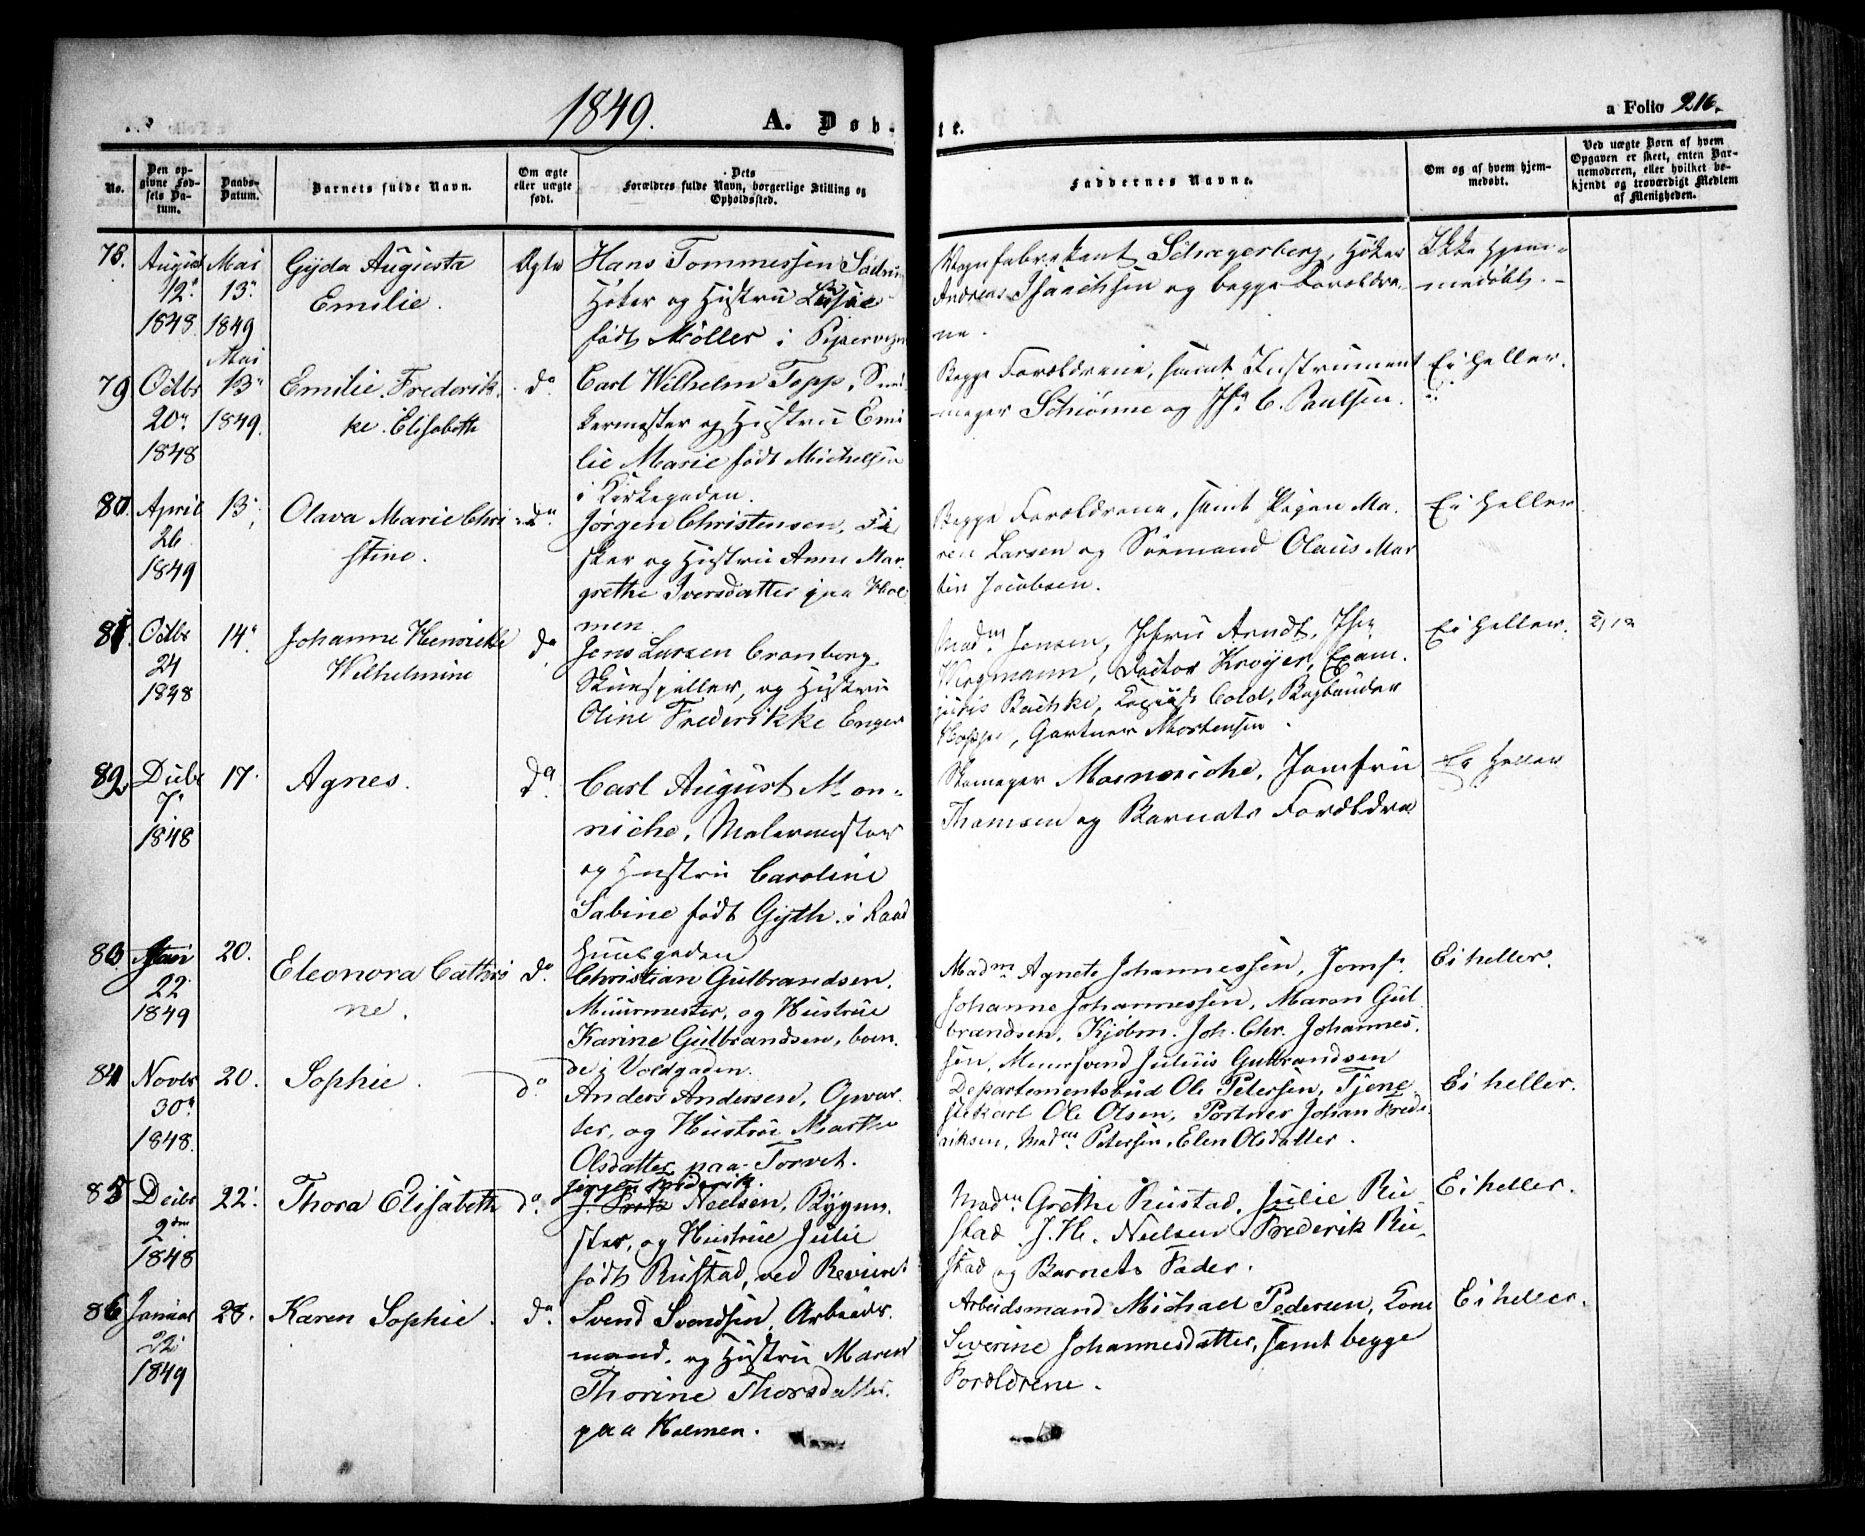 1849.
A. Døb-
te.
a Folio 216.
No.
Den op-
givne Fød-
sels Da-
tum.
Daabs-
Datum.
Barnets fulde Navn.
Om ægte
eller uægte
født.
Dets
Forældres fulde Navn, borgerlige Stilling og
Opholdssted.
Faddernes Navne.
Om og af hvem hjem-
medøbt.
Ved uægte Børn af hvem
Opgaven er skeet, enten Bar-
nemoderen, eller hvilket be-
kjendt og troværdigt Medlem
af Menigheden.
78.
August
12te
1848
Mai
13.
1849
Gyda Augusta
Emilie.
Ægte
Hans Tommessen
Høker og Hustru
født Møller i Pipervigen
Vognfabrikant Schwegerberg, Høker
Andreas Isaachsen og begge Forældre-
ne.
Ikke hjem-
medøbt.
79
Octbr
20de
1848
Mai
13de
1849.
Emilie Frederik-
ke Elisabeth
do
Carl Wilhelm Topp, Sned
kermester og Hustru Emi
lie Marie født Michelsen
i Kirkegaden.
Begge Forældrene, samt Instrument
mager Schiønne og Jfr C. Paulsen.
Ei heller.
80.
April
26
1849
13.
Olava Marie Chri-
stine.
do
Jørgen Christensen, Fi
sker og Hustru Anne Mar-
grethe Iversdatter paa Hol
men
Begge Forældrene, samt Pigen Ma-
ren Larsen og Sømand Olaus Mar
tin Jacobsen.
Ei heller
81.
Octbr
24
1848
14.
Johanne Henriette
Wilhelmine
do
Jens Larsen Cronborg
Skuespiller, og Hustru
Oline Frederikke Enger
Madm Jensen, Jfru Arndt, Jfr
Wegmann, Doctor Krøyer, Exam.
juris Bachke, Cold, Bogbinder
Hoppe, Gartner Mortensen.
Ei heller.
82
Decbr
7de
1848
17.
Agnes.
do
Carl August Mon-
niche, Malermester
og Hustru Caroline
Sabine født Gyth i Raad
huusgaden
Skomager Monniche, Jomfru
Thomsen og Barnets Forældre
Ei heller
83
22
1849
20.
Eleonora Cathri
ne.
do
Christian Gulbrandsen,
Muurmester, og Hustrue
Karine Gulbrandsen, boen-
de i Voldgaden.
Madme Agnete Johannessen, Jomfr
Johanne Johannessen, Maren Gul
brandsen, Kjøbm. Joh. Chr. Johannes-
sen, Muursvend Julius Gulbrandsen
Ei heller.
84
Novbr
30te
1848.
20.
Sophie.
do
Anders Andersen, Opvar-
ter, og Hustrue Marthe
Olsdatter paa Torvet.
Departementsbud Ole Petersen, Tjene
stekarl Ole Olsen, Portner Johan Frede-
riksen, Madme Petersen, Elen Olsdatter.
Ei heller.
85
Decbr
2den
1848
22.
Thora Elisabeth
do
Jørgen Frederik
J. Fritz Nielsen, Bygm.
ster, og Hustrue Julie
født Rustad, ved Revieret
Madme Grethe Rustad, Julie Ru-
stad, J. H. Nielsen, Frederik Ru-
stad og Barnets Fader.
Ei heller.
86
Januar
1849
28.
Karen Sophie.
do
Svend Svendsen, Arbeids-
mand, og Hustru Maren
Thorine Thorsdatter
paa Holmen.
Arbeidsmand Michael Pedersen, Tone
Severine Johannesdatter, samt begge
Forældrene.
Ei heller.